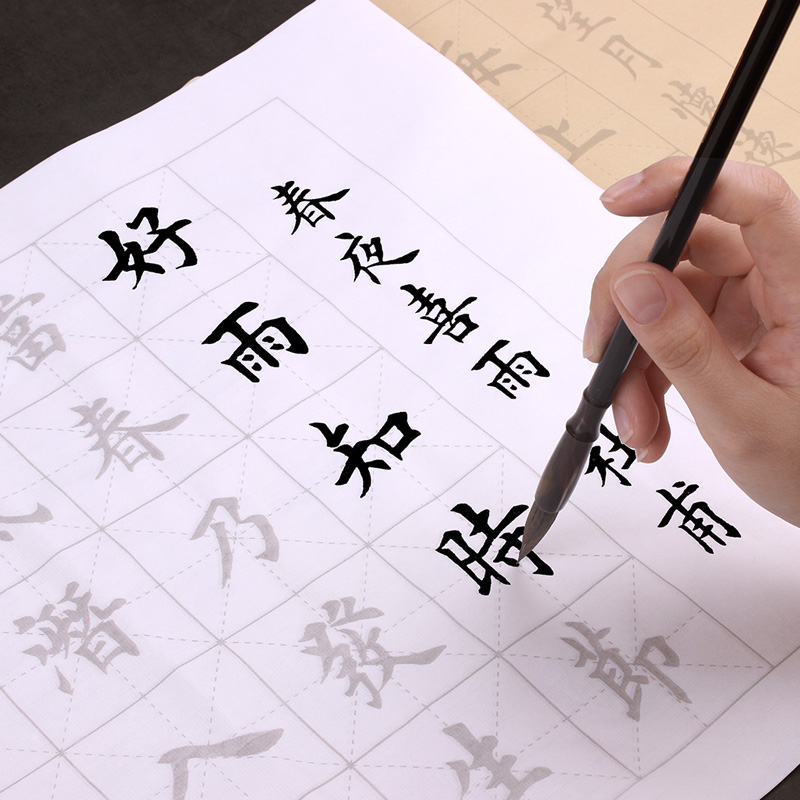 春夜喜雨 杜甫
好雨知時節
當春乃發生
潛入
望月
上